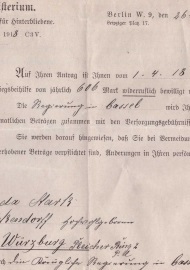 sterium.
für Hinterbliebene.
Berlin W. 9, den 26.
Leipziger Platz 17.
1918 C3V.
Auf Ihren Antrag ist Ihnen vom 1. 4. 18
ngsbeihilfe von jährlich 606 Mark widerruflich bewilligt
Die Regierung in Cassel wird Ih
natlichen Beträgen zusammen mit den Versorgungsgebührnis
Sie werden darauf hingewiesen, daß Sie bei Vermeidun
erhobener Beträge verpflichtet sind, Änderungen in Ihren person
Stark
kendorff
Würzburg
die Königliche Regierung in Cassel